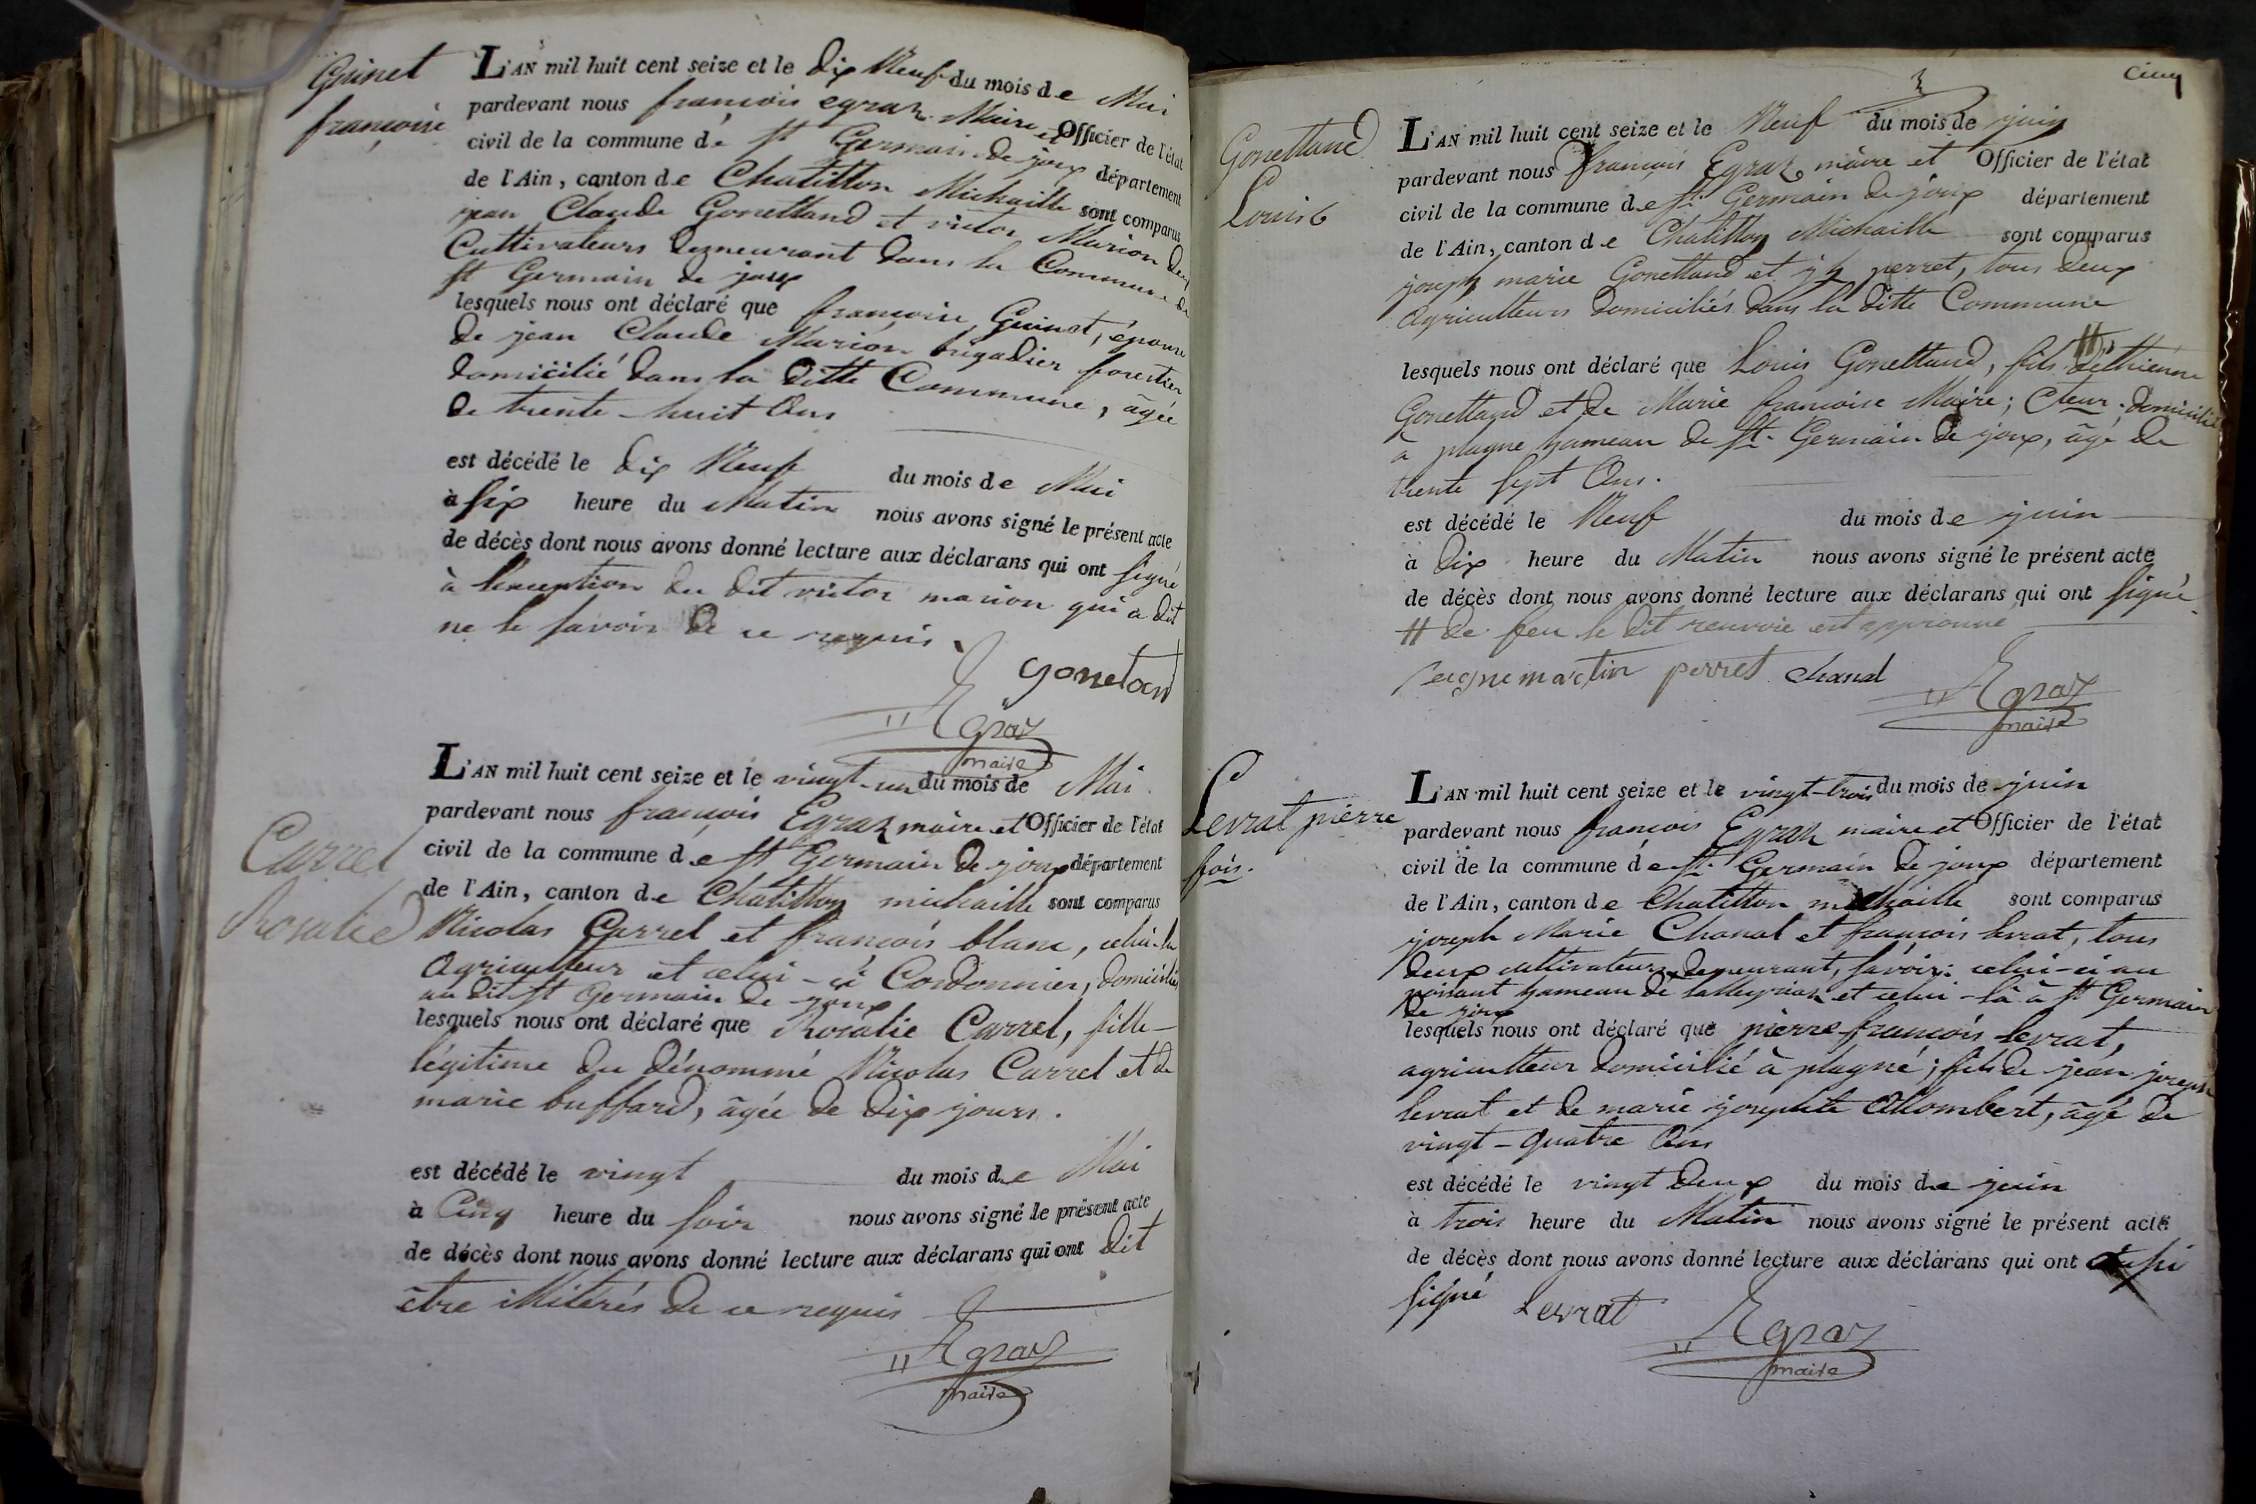 Guinet
françoise
L'AN mil huit cent seize et le dix Neuf du mois de Mai
pardevant nous françois egraz Maire et Officier de l'état
civil de la commune de st Germain de joux département
de l'Ain, canton de Chatillon Michaille sont comparus
jean Claude Gonettand et victor Marion deux
Cultivateurs demeurant dans la Commune de
st Germain de joux
lesquels nous ont déclaré que françoise Guinet, épouse
de jean Claude Marion brigadier forestier
domicilié dans la ditte Commune, âgée
de trente-huit Ans
est décédé le dix Neuf du mois de Mai
à six heure du Matin nous avons signé le présent acte
de décès dont nous avons donné lecture aux déclarans qui ont signé
à lexception du dit victor marion qui a dit
ne le savoir de ce requis.
gonetan
Egraz
maire
Carrel
Rosalie
L'AN mil huit cent seize et le vingt-un du mois de Mai
pardevant nous françois Egraz maire et Officier de l'état
civil de la commune de st Germain de joux département
de l'Ain, canton de Chatillon michaille sont comparus
Nicolas Carrel et françois blanc, celui-la
Agriculteur et celui-ci Cordonnier, domiciliés
au dit st Germain de joux
lesquels nous ont déclaré que Rosalie Carrel, fille
légitime du dénommé Nicolas Carrel et de
marie buffard, âgée de dix jours.
est décédé le vingt du mois de Mai
à Cinq heure du soir nous avons signé le présent acte
de décès dont nous avons donné lecture aux déclarans qui ont dit
être illiterés de ce requis
Egraz
maire
cinq
Gonettand
Louis
L'AN mil huit cent seize et le Neuf du mois de juin
pardevant nous françois Egraz maire et Officier de l'état
civil de la commune de st Germain de joux département
de l'Ain, canton de Chatillon Michaille sont comparus
joseph marie Gonettand et jh perret, tous deux
agriculteurs domiciliés dans la ditte Commune
lesquels nous ont déclaré que Louis Gonettand, fils # d'éthienne
Gonettand et de Marie françoise Maire; Cteur. domicilié
à plagne hameau de st. Germain de joux, âgé de
trente sept Ans.
est décédé le Neuf du mois de juin
à dix heure du Matin nous avons signé le présent acte
de décès dont nous avons donné lecture aux déclarans qui ont signé.
# de feu le dit renvoie est approuvé
Seigne martin perret chanal Egraz
maire
Levrat pierre
fois.
L'AN mil huit cent seize et le vingt-trois du mois de juin
pardevant nous françois Egraz maire et Officier de l'état
civil de la commune de st. Germain de joux département
de l'Ain, canton de Chatillon michaille sont comparus
joseph Marie Chanal et françois levrat, tous
deux cultivateurs demeurant, savoir: celui-ci au
hameau de et celui-là à st Germain
de joux
lesquels nous ont déclaré que pierre françois levrat,
agriculteur domicilié à plagne; fils de jean joseph
levrat et de marie josephte Allombert, âgé de
vingt-quatre Ans
est décédé le vingt deux du mois de juin
à trois heure du Matin nous avons signé le présent acte
de décès dont nous avons donné lecture aux déclarans qui ont
signé Levrat Egraz
maire